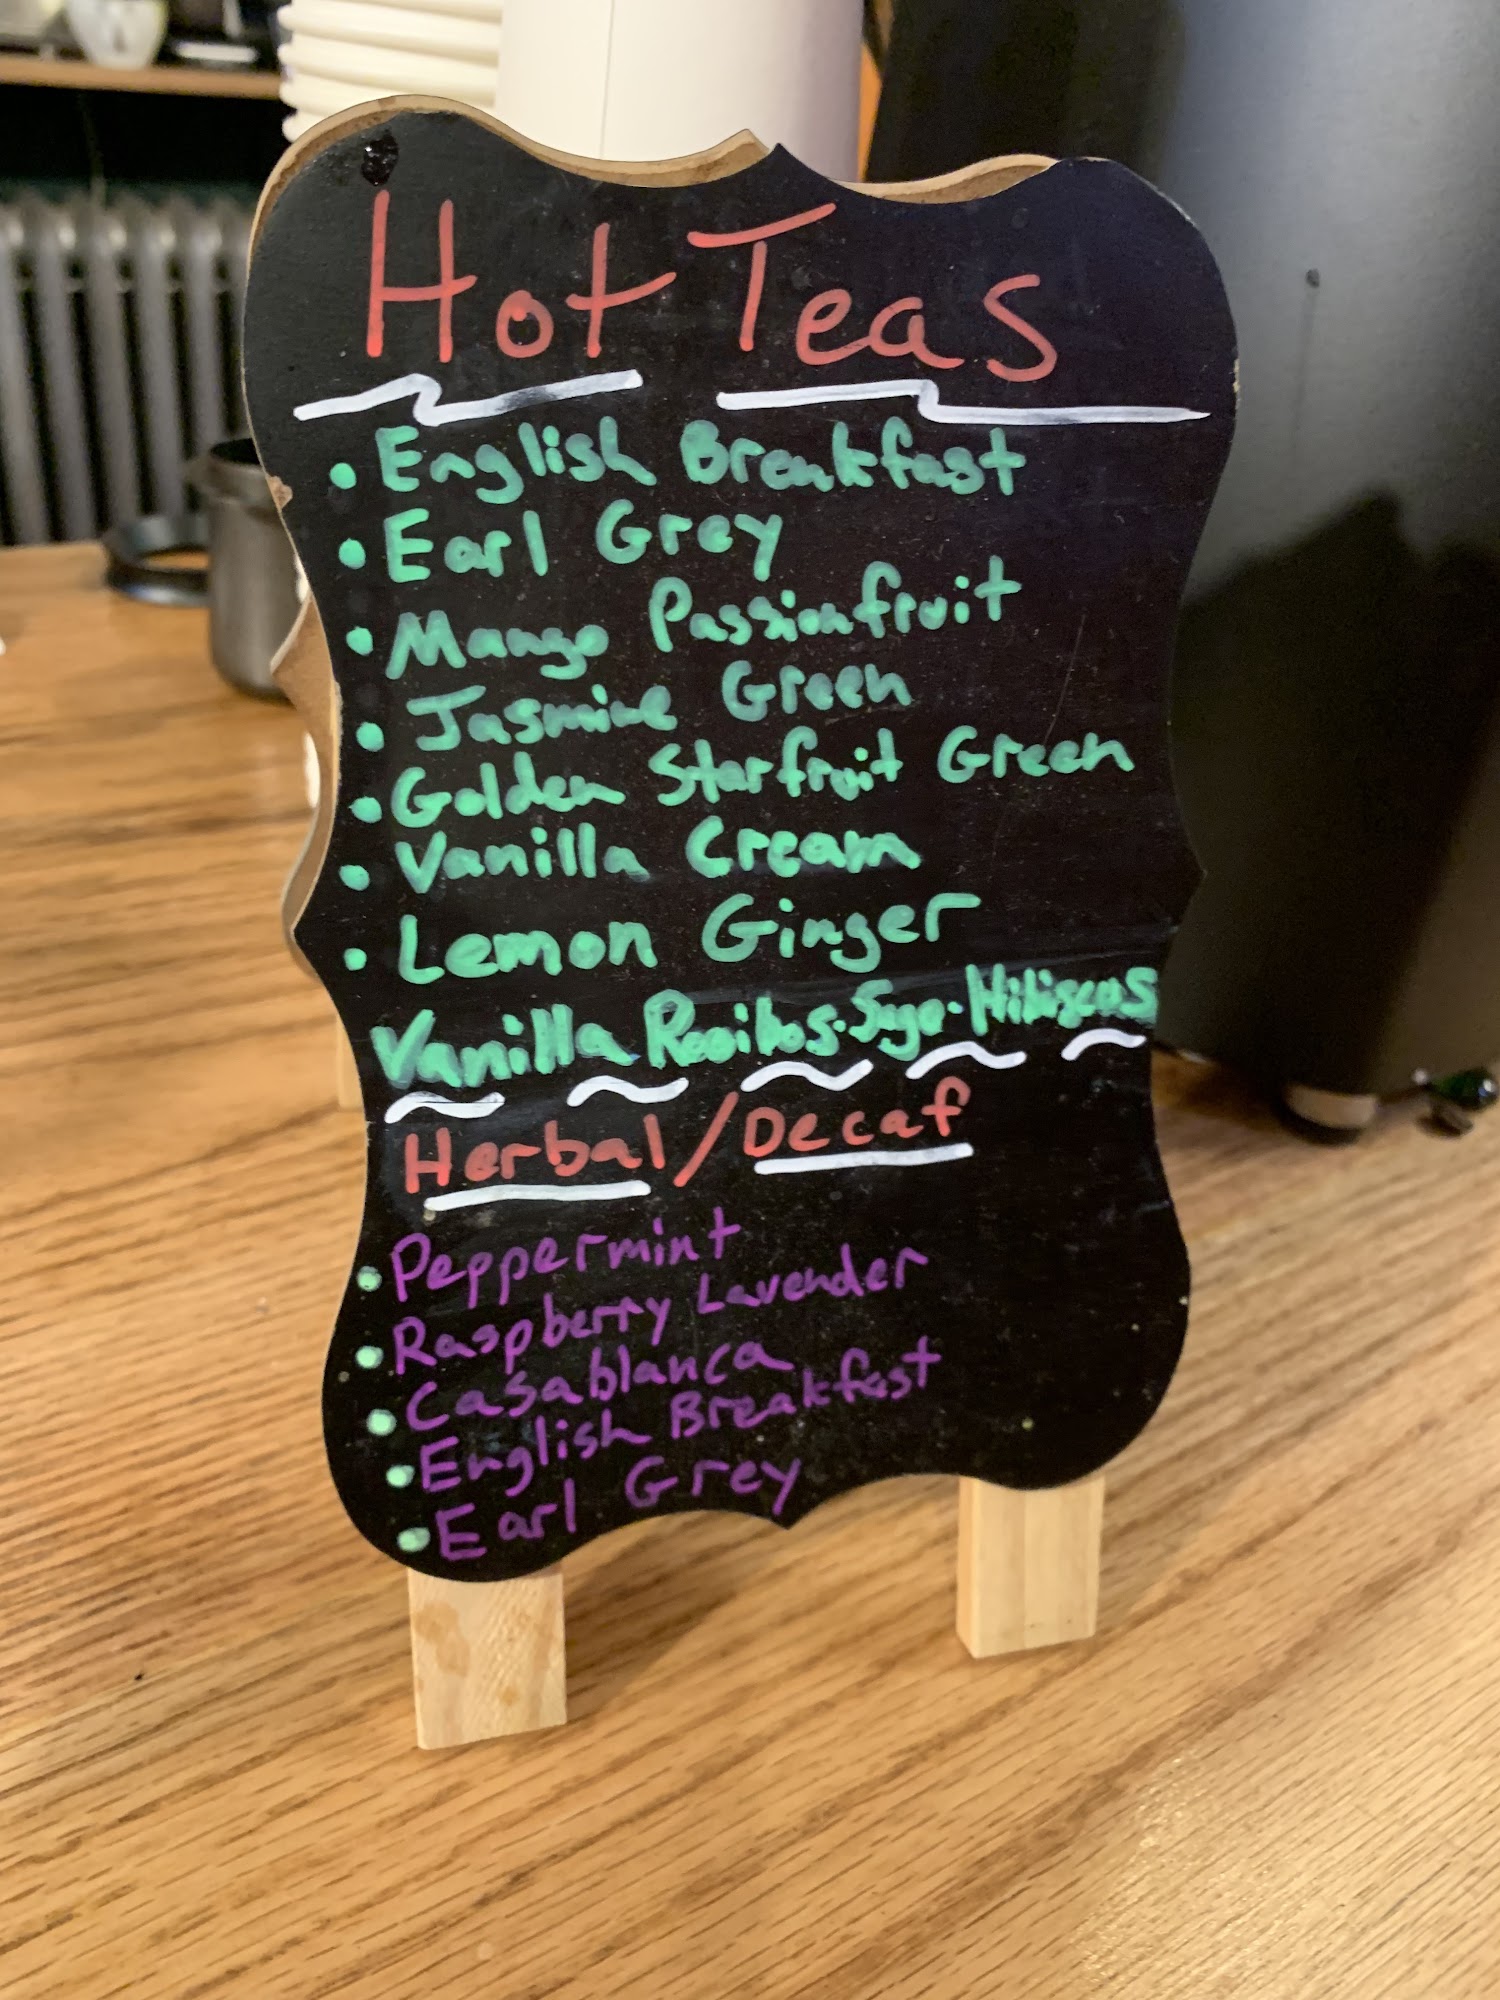 Hot Teas
• English Breakfast
• Earl Grey
• Mango Passionfruit
• Jasmine Green
• Golden Starfruit Green
• Vanilla Cream
• Lemon Ginger
Vanilla Rooibos·Sage·Hibiscus
Herbal/Decaf
• Peppermint
• Raspberry Lavender
• Casablanca
• English Breakfast
• Earl Grey